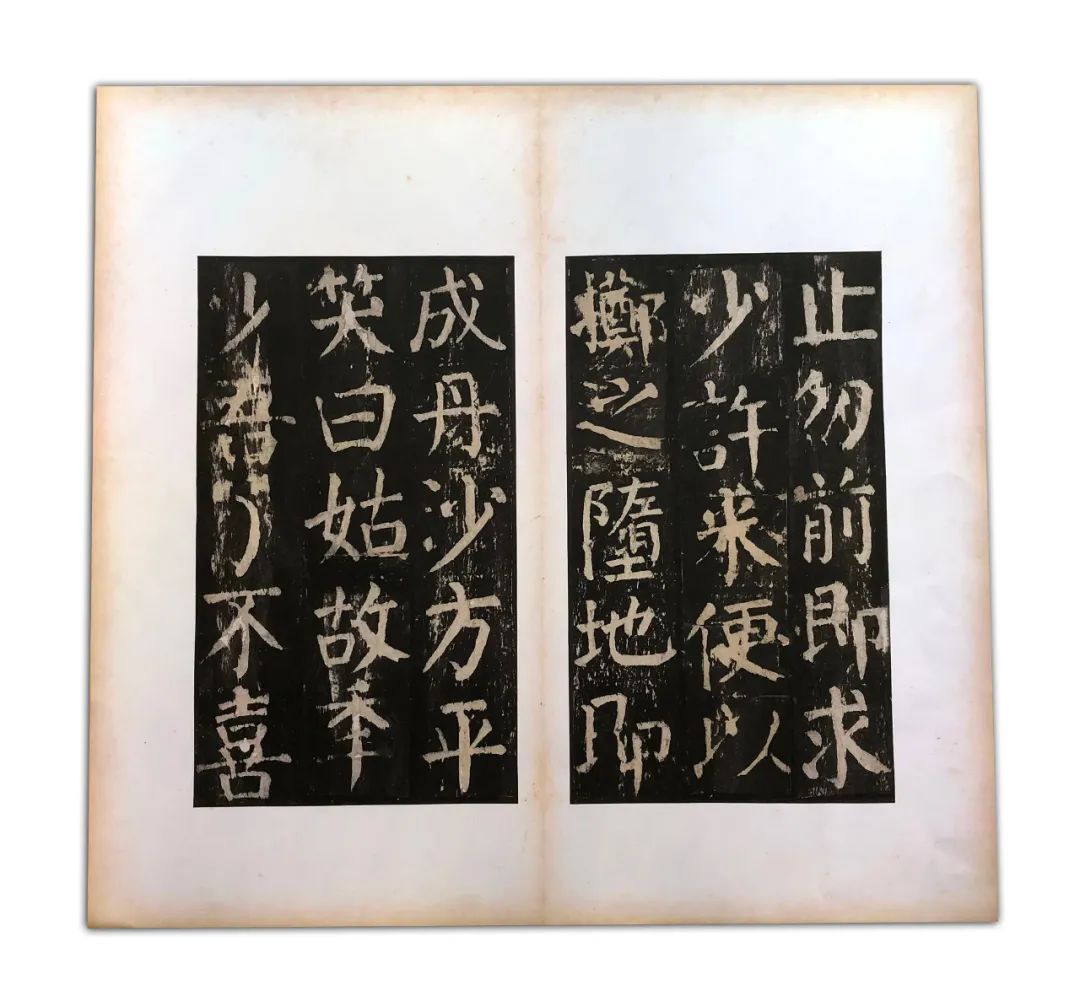 止勿前即求
少許米便以
擲之墮地即
成丹沙方平
笑曰姑故年
少吾了不喜